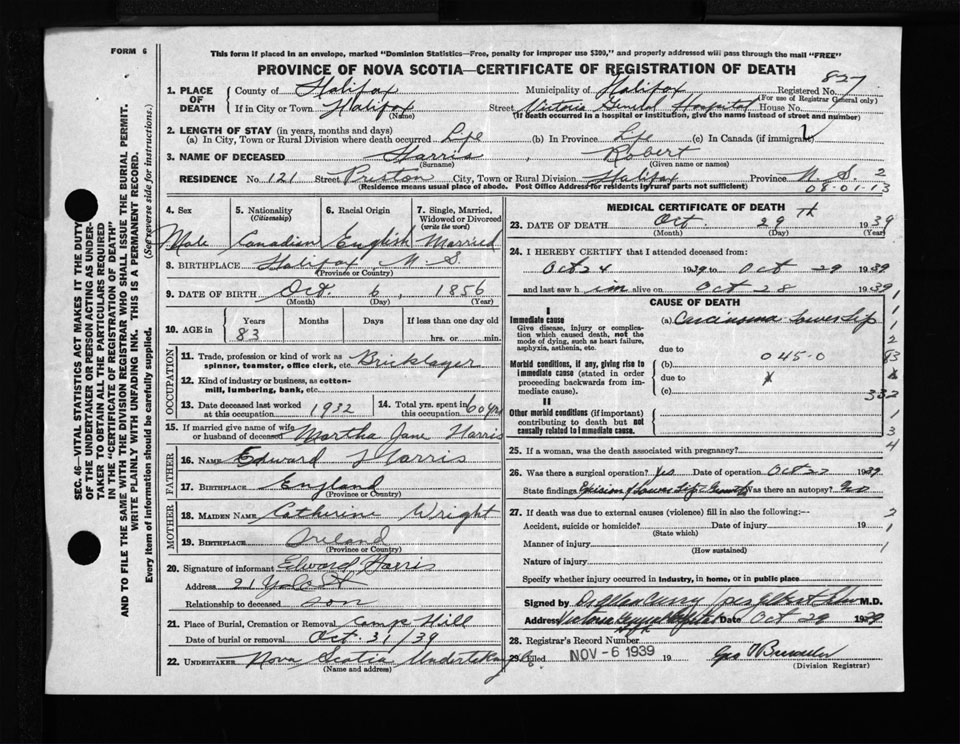 FORM 6
This form if placed in an envelope, marked "Dominion Statistics—Free, penalty for improper use $300," and properly addressed will pass through the mail "FREE"
PROVINCE OF NOVA SCOTIA—CERTIFICATE OF REGISTRATION OF DEATH
827
1. PLACE OF DEATH
County of Halifax Municipality of Halifax Registered No.
(For use of Registrar General only)
If in City or Town Halifax Street Victoria General Hospital House No.
(Name) (If death occurred in a hospital or institution, give the name instead of street and number)
2. LENGTH OF STAY (in years, months and days)
(a) In City, Town or Rural Division where death occurred Life (b) In Province Life (c) In Canada (if immigrant)
3. NAME OF DECEASED Harris, Robert
(Surname) (Given name or names)
RESIDENCE No. 121 Street Preston City, Town or Rural Division Halifax Province N. S. 2
(Residence means usual place of abode. Post Office Address for residents in rural parts not sufficient) 08-01-13
4. Sex 5. Nationality (Citizenship) 6. Racial Origin 7. Single, Married, Widowed or Divorced (write the word)
Male Canadian English Married
8. BIRTHPLACE Halifax N. S.
(Province or Country)
9. DATE OF BIRTH Oct. 6, 1856
(Month) (Day) (Year)
10. AGE in Years Months Days If less than one day
83 hrs. or min.
OCCUPATION
11. Trade, profession or kind of work as spinner, teamster, office clerk, etc. Bricklayer
12. Kind of industry or business, as cotton-mill, lumbering, bank, etc.
13. Date deceased last worked at this occupation 1932
14. Total yrs. spent in this occupation 60 yrs
15. If married give name of wife or husband of deceased Martha Jane Harris
FATHER
16. NAME Edward Harris
17. BIRTHPLACE England
(Province or Country)
MOTHER
18. MAIDEN NAME Catherine Wright
19. BIRTHPLACE Ireland
(Province or Country)
20. Signature of informant Edward Harris
Address 21 Yale St
Relationship to deceased son
21. Place of Burial, Cremation or Removal Camp Hill
Date of burial or removal Oct. 31/39
22. UNDERTAKER Nova Scotia Undertaking
(Name and address)
MEDICAL CERTIFICATE OF DEATH
23. DATE OF DEATH Oct. 29th 1939
(Month) (Day) (Year)
24. I HEREBY CERTIFY that I attended deceased from:
Oct 24 1939 to Oct 29 1939
and last saw him alive on Oct 28 1939
CAUSE OF DEATH
I
Immediate cause (a) Carcinoma Lower Lip
Give disease, injury or complication which caused death, not the mode of dying, such as heart failure, asphyxia, asthenia, etc.
due to
045-0
Morbid conditions, if any, giving rise to immediate cause (stated in order proceeding backwards from immediate cause).
(b)
due to
(c)
332
II
Other morbid conditions (if important) contributing to death but not causally related to immediate cause.
1
1
1
2
1
3
4
25. If a woman, was the death associated with pregnancy?
26. Was there a surgical operation? Yes Date of operation Oct 27 1939
State findings Excision of Lower Lip Growth Was there an autopsy? No
27. If death was due to external causes (violence) fill in also the following:—
Accident, suicide or homicide? Date of injury 19
(State which)
Manner of injury
(How sustained)
Nature of injury
2
1
1
Specify whether injury occurred in industry, in home, or in public place
Signed by M.D.
Address Victoria General Hospital Date Oct 29 1939
28. Registrar's Record Number
29. Filed NOV - 6 1939 19
(Division Registrar)
SEC. 46—VITAL STATISTICS ACT MAKES IT THE DUTY
OF THE UNDERTAKER OR PERSON ACTING AS UNDER-
TAKER TO OBTAIN ALL THE PARTICULARS REQUIRED
IN THE "CERTIFICATE OF REGISTRATION OF DEATH"
AND TO FILE THE SAME WITH THE DIVISION REGISTRAR WHO SHALL ISSUE THE BURIAL PERMIT.
WRITE PLAINLY WITH UNFADING INK. THIS IS A PERMANENT RECORD.
Every item of information should be carefully supplied. (See reverse side for instructions.)